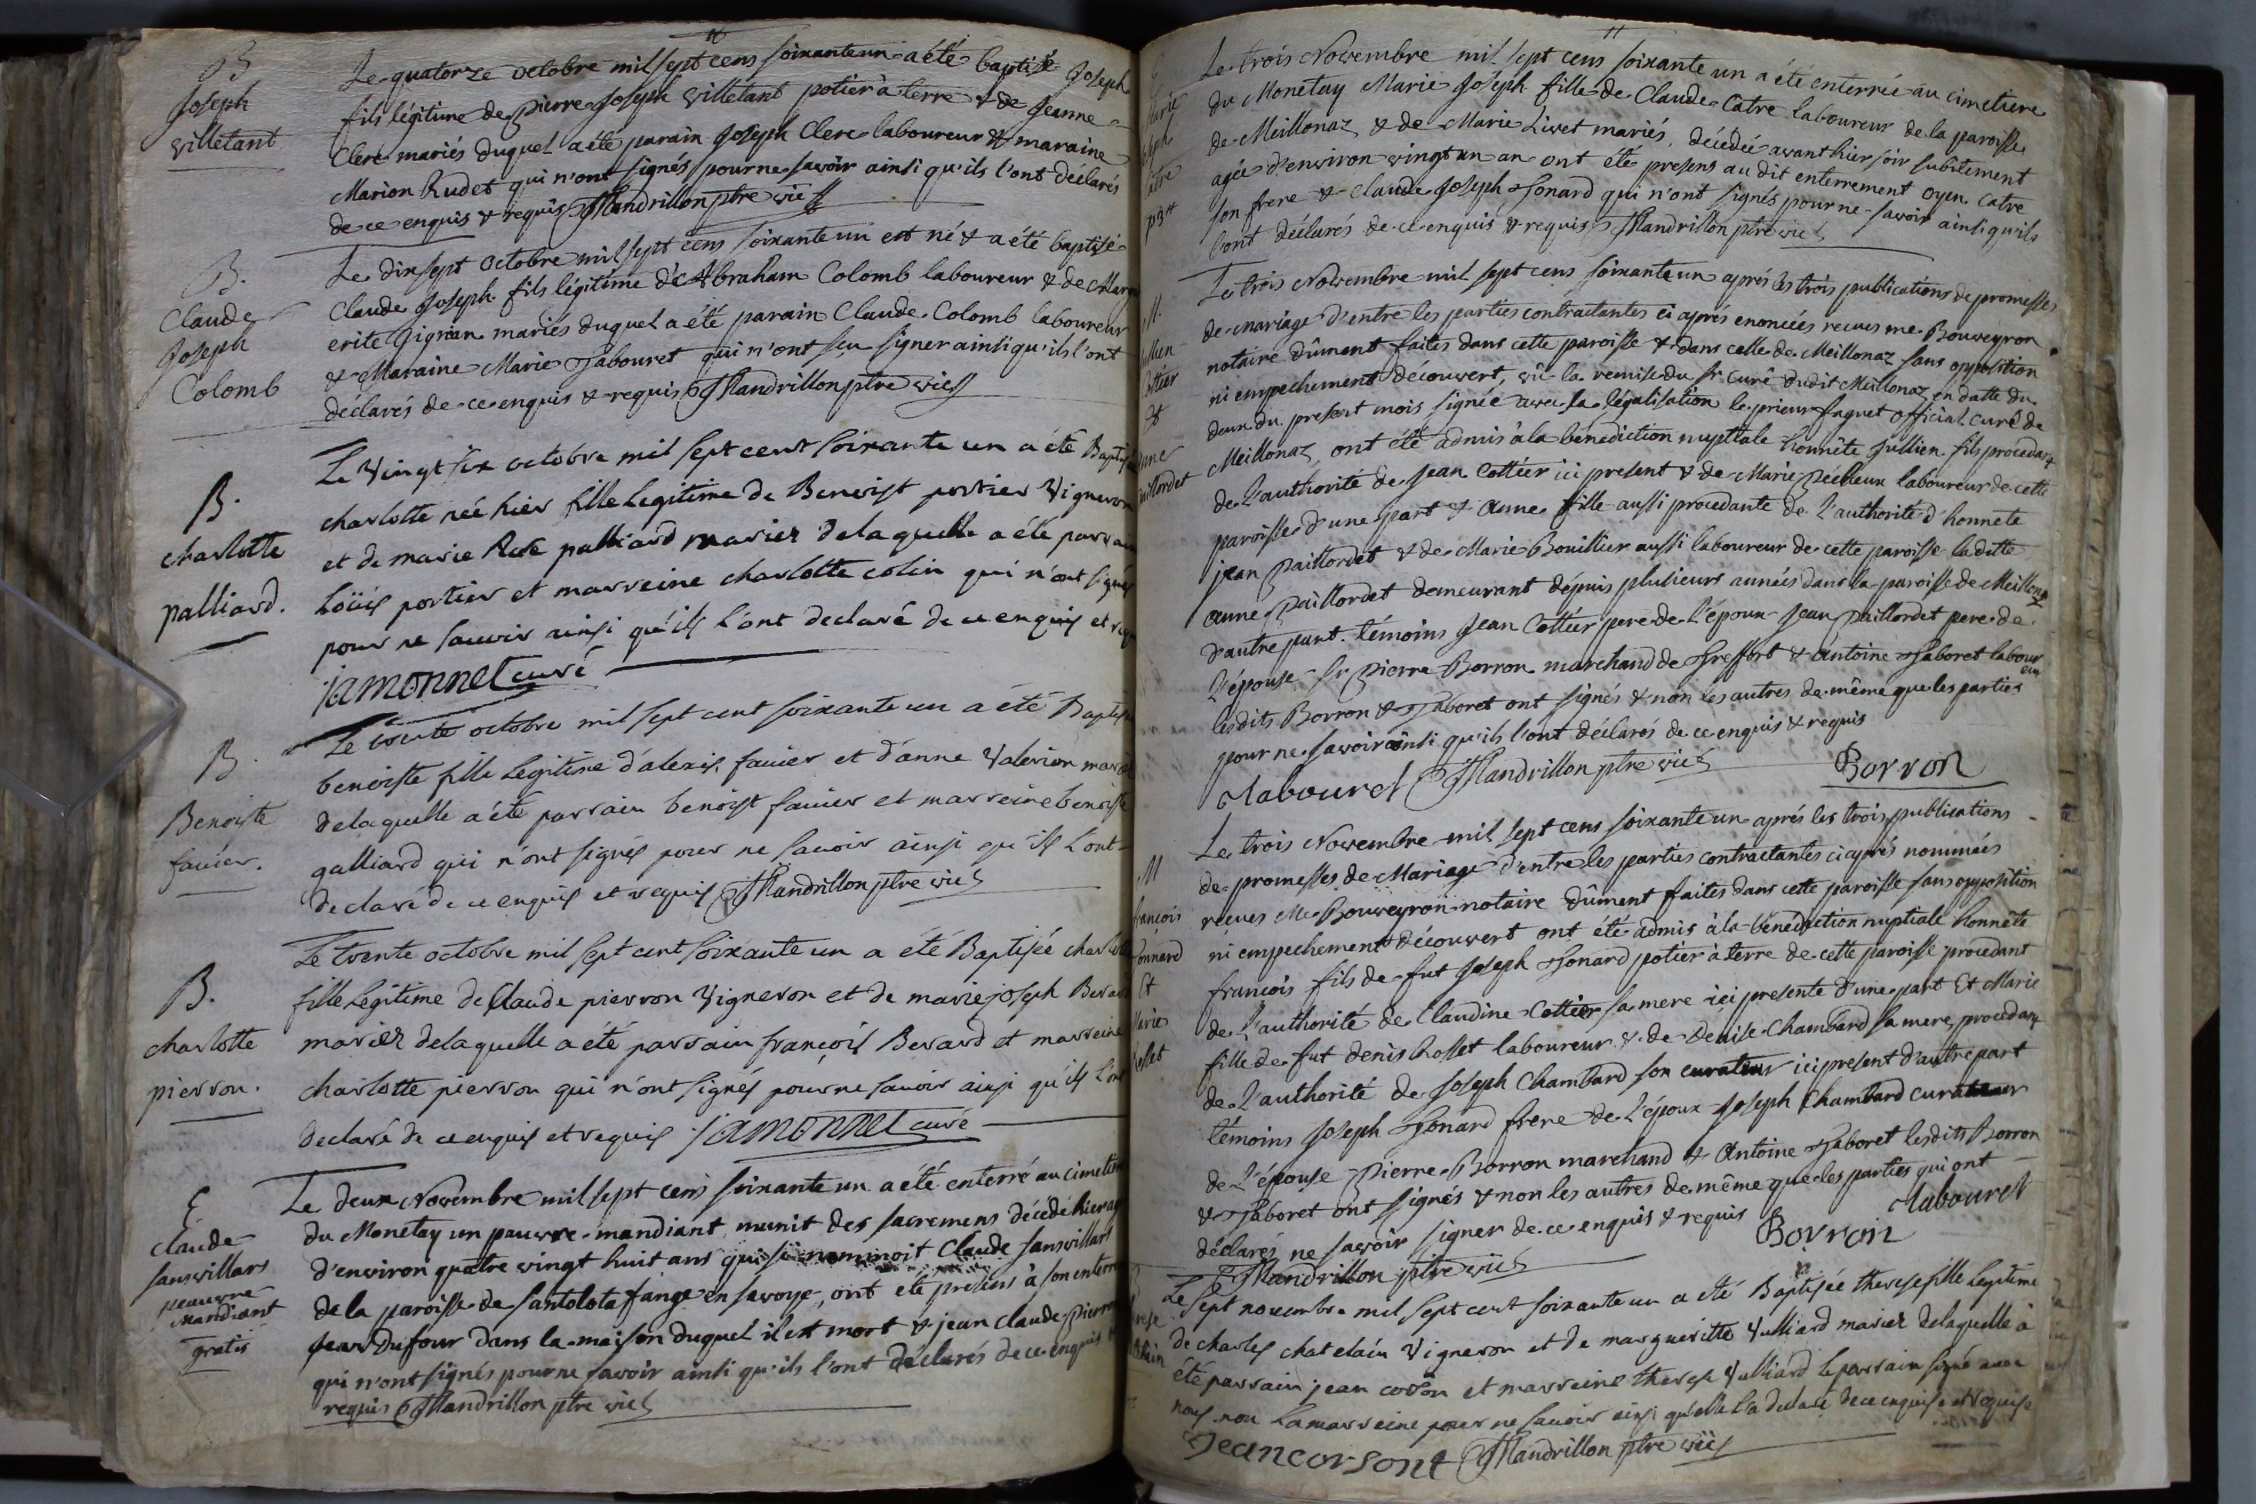 B
Joseph
villetant
Le quatorze octobre mil sept cens soixante un a été baptisé Joseph
fils légitime de Pierre Joseph villetant potier à terre & de Jeanne
Clerc mariés duquel a été parain Joseph Clerc laboureur & maraine
Marion Rudet qui n'ont signés pour ne savoir ainsi qu'ils l'ont déclarés
de ce enquis & requis Mandrillon ptre vic
B.
Claude
Joseph
Colomb
Le dix sept octobre mil sept cens soixante un est né & a été baptisé
Claude Joseph fils légitime d'Abraham Colomb laboureur & de Marg
erite mariés duquel a été parain Claude Colomb laboureur
& Maraine Marie Tabouret qui n'ont sçu signer ainsi qu'ils l'ont
déclarés de ce enquis & requis Mandrillon ptre vic
B.
charlotte
palliard.
Le vingt six octobre mil sept cent soixante un a été
charlotte née hier fille legitime de Benoist portier vigneron
et de marie palliard mariez de laquelle a été
Loüis portier et marreine charlotte colin qui n'ont signés
pour ne sauoir ainsi qu'ils l'ont declaré de ce enquis et
jamonnet curé
B
Benoiste
fauier.
Le trente octobre mil sept cent soixante un a été
benoiste fille legitime d'alexis fauier et d'anne Valerion
de laquelle a été parrain benoist fauier et marreine benoiste
galliard qui n'ont signés pour ne sauoir ainsi qu'ils l'ont
declaré de ce enquis et requis Mandrillon ptre vic
B.
charlotte
pierron.
Le trente octobre mil sept cent soixante un a été Baptisée charlotte
fille legitime de Claude pierron vigneron et de marie joseph
mariez de laquelle a été parrain françois Berard et marreine
charlotte pierron qui n'ont signés pour ne sauoir ainsi qu'ils l'ont
declaré de ce enquis et requis jamonnet curé
E
Claude
sanvillars
peauvre
mandiant
gratis
Le deux Novembre mil sept cens soixante un a été enterré au cimetiere
du Monetay un pauvre mandiant munit des sacremens décédé hier
d'environ quatre vingt huit ans qui se nommoit Claude sanvillars
de la paroisse de en savoye, ont été presens à son
Jean Dufour dans la maison duquel il est mort & jean claude
qui n'ont signés pour ne savoir ainsi qu'ils l'ont déclarés de ce enquis &
requis Mandrillon ptre vic
Le trois Novembre mil sept cens soixante un a été enterrée au cimetiere
du Monetay Marie Joseph fille de Claude Catre laboureur de la paroisse
de Meillonaz & de Marie Livet mariés, décédée avant hier soir subitement
agée d'environ vingt un an ont été presens au dit enterrement oyen Catre
son frere & Claude Joseph Jonard qui n'ont signés pour ne savoir ainsi qu'ils
l'ont déclarés de ce enquis & requis Mandrillon ptre vic
M.
Cottier
&
Le trois Novembre mil sept cens soixante un aprés les trois publications de promesses
de mariage d'entre les parties contractantes ci aprés enoncées recues me Bouveyron
notaire dûment faites dans cette paroisse & dans celle de Meillonaz sans opposition
ni empechement découvert, vû la remise du sr. curé dudit Meillonaz en datte du
deux du present mois signée avec sa légalisation le prieur faguet official curé de
Meillonaz, ont été admis à la bénédiction nuptiale honnête Jullien fils procedant
de l'authorité de jean Cottier ici present & de Marie Pécheux laboureur de cette
paroisse d'une part & anne fille aussi procedante de l'authorité d'honnete
jean Paillordet & de Marie Bouillier aussi laboureur de cette paroisse ladette
anne Paillordet demeurant depuis plusieurs années dans la paroisse de Meillonaz
d'autre part. témoins jean Cottier pere de l'époux jean Paillordet pere de
l'épouse sr. Pierre Borron marchand de Treffort & antoine Taboret laboureur
lesdits Borron & Taboret ont signés & non les autres de même que les parties
pour ne savoir ainsi qu'ils l'ont déclarés de ce enquis & requis
Mandrillon ptre vic Borron
M
françois
Jonnard
Et
Marie
Le trois Novembre mil sept cens soixante un aprés les trois publications
de promesses de Mariage d'entre les parties contractantes ci aprés nommées
recues Me Bouveyron notaire dûment faites dans cette paroisse sans opposition
ni empechement découvert ont été admis à la bénédiction nuptiale honnête
françois fils de fut Joseph Jonard potier à terre de cette paroisse procedant
de l'authorité de Claudine Cottier sa mere ici presente d'une part Et Marie
fille de fut denis Rosset laboureur & de Denise Chambard sa mere, procedant
de l'authorité de Joseph Chambard son curateur ici present d'autre part
témoins Joseph Jonard frere de l'époux Joseph Chambard curateur
de l'épouse Pierre Borron marchand & Antoine Taboret lesdits Borron
& Taboret ont signés & non les autres de même que les parties qui ont
déclarés ne savoir signer de ce enquis & requis Borron
Mandrillon ptre vic
Le sept nouembre mil sept cent soixante un a été Baptisée therese fille legitime
de charles chatelain vigneron et de margueritte Vulliard mariez de laquelle à
été parrain jean et marreine therese Vulliard le parrain signé auec
nous non la marreine pour ne sauoir ainsi qu'elle l'a declaré de ce enquise et requise
Jean corsont Mandrillon ptre vic